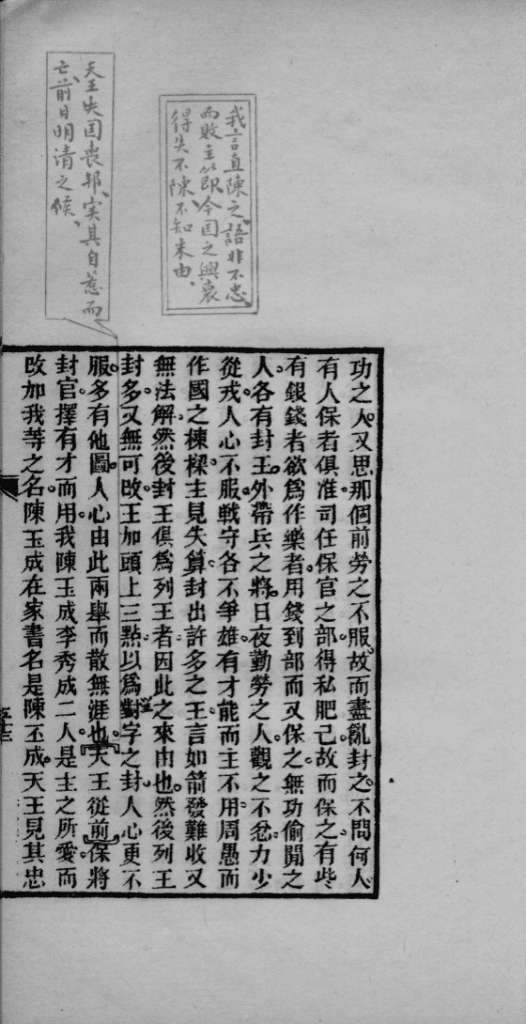 我言直陳之語非不忠、
而敗主以即今囯之興衰
得失不陳、不知来由、
天王失囯丧邦、实其自惹而
亡、前日明清之候、
功之人又思那個前勞之不服故而盡亂封之不問何人
有人保者俱准司任保官之部得私肥己故而保之有些
有銀錢者欲爲作樂者用錢到部而又保之無功偷閒之
人各有封王外帶兵之將日夜勤勞之人觀之不忿力少
從戎人心不服戰守各不爭雄有才能而主不用周愚而
作國之棟樑主見失算封出許多之王言如箭發難收又
無法解然後封王俱爲列王者因此之來由也然後列王
封多又無可改王加頭上三點以爲𪩘字之封人心更不
服多有他圖人心由此兩舉而散無涯也天王從前保將
封官擇有才而用我陳玉成李秀成二人是主之所愛而
改加我等之名陳玉成在家書名是陳丕成天王見其忠